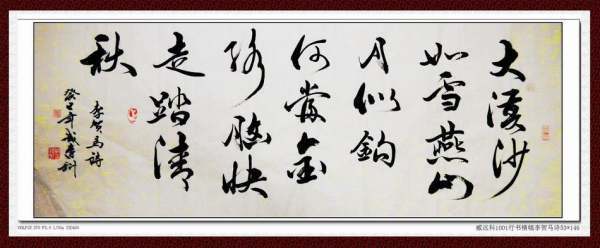 大漠沙
如雪燕山
月似鈎
何當金
絡腦快
走踏清
秋
李賀馬詩
癸巳年戚漢科
戚汉科1001行书横幅李贺马诗53*146